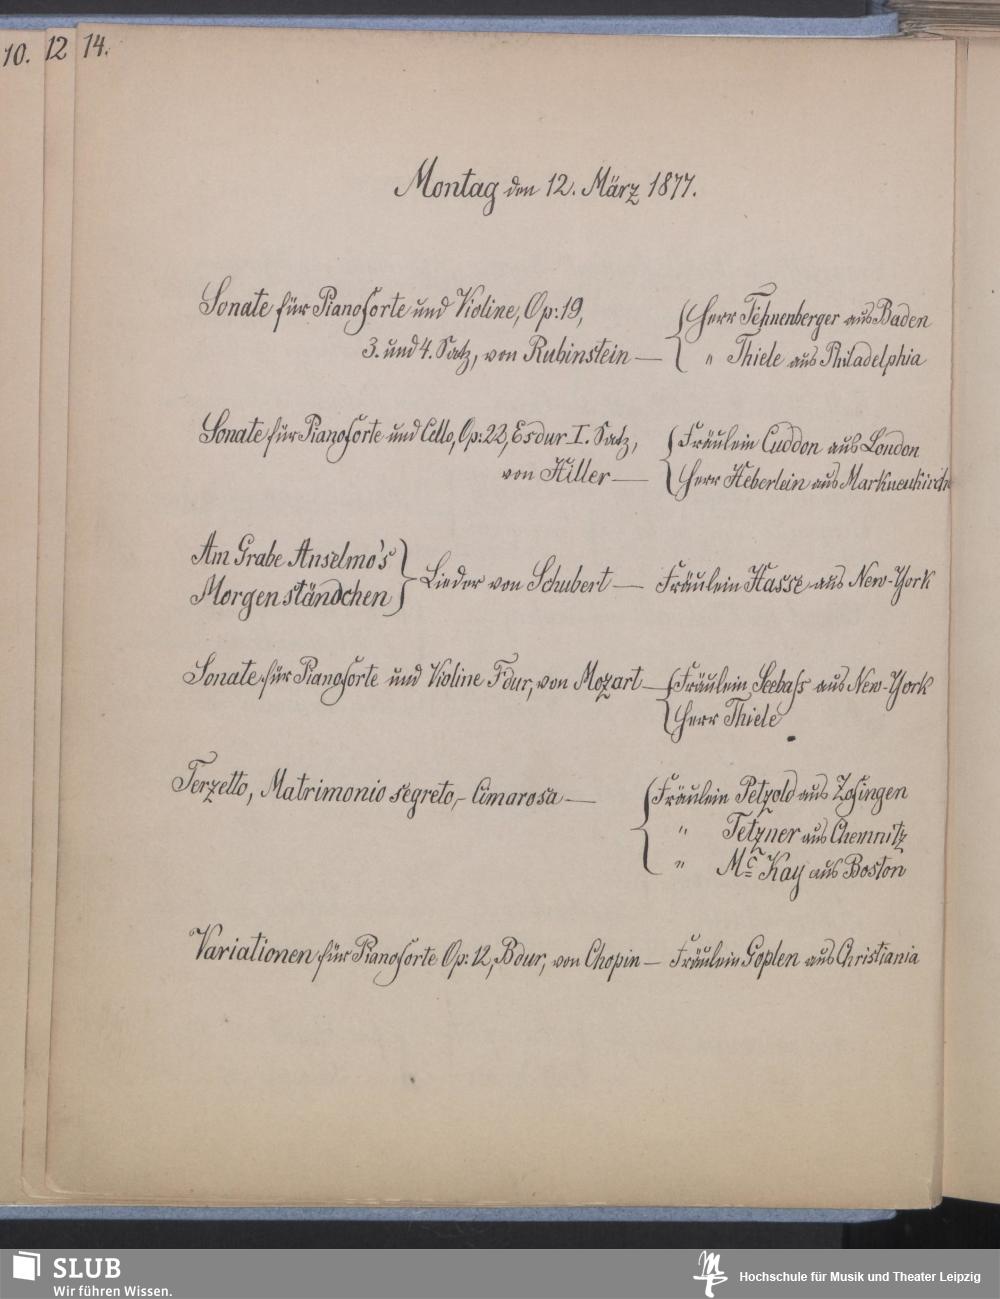 10. 12 14.
Montag den 12. März 1877.
Sonate für Pianoforte und Violine, Op: 19,
3. und 4. Satz, von Rubinstein — Herr Tehnenberger aus Baden
" Thiele aus Philadelphia
Sonate für Pianoforte und Cello, Op: 22, Esdur I. Satz,
von Hiller — Fräulein Cuddon aus London
Herr Heberlein aus Markneukirch
Am Grabe Anselmo's
Morgenständchen } Lieder von Schubert — Fräulein Hasse aus New-York
Sonate für Pianoforte und Violine Fdur, von Mozart — Fräulein Seebaß aus New-York
Herr Thiele
Terzetto, Matrimonio segreto,- Cimarosa — Fräulein Petzold aus Zofingen
" Tetzner aus Chemnitz
" Mc Kay aus Boston
Variationen für Pianoforte Op: 12, Bdur, von Chopin — Fräulein Goplen aus Christiania
SLUB
Wir führen Wissen.
Hochschule für Musik und Theater Leipzig